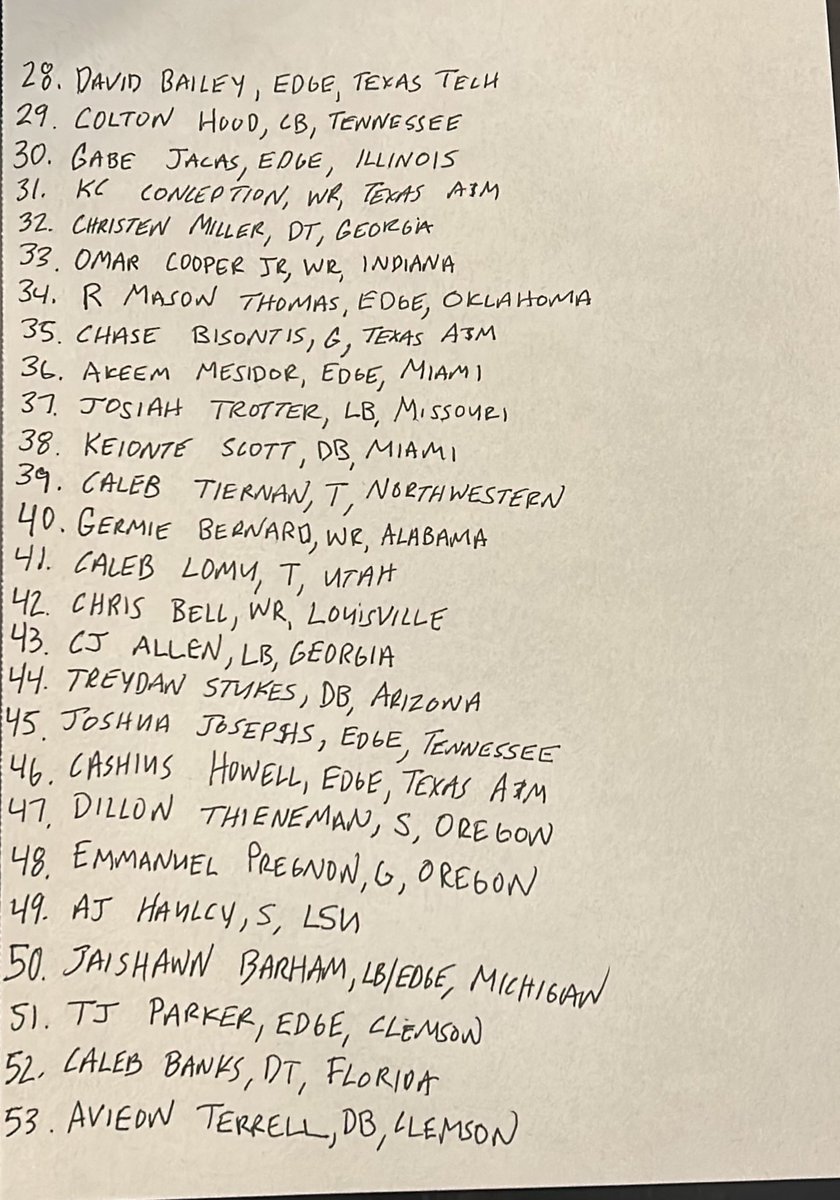 28. DAVID BAILEY, EDGE, TEXAS TECH
29. COLTON HOOD, CB, TENNESSEE
30. GABE JACAS, EDGE, ILLINOIS
31. KC CONCEPTION, WR, TEXAS A&M
32. CHRISTEN MILLER, DT, GEORGIA
33. OMAR COOPER JR, WR, INDIANA
34. R MASON THOMAS, EDGE, OKLAHOMA
35. CHASE BISONTIS, G, TEXAS A&M
36. AKEEM MESIDOR, EDGE, MIAMI
37. JOSIAH TROTTER, LB, MISSOURI
38. KEIONTE SCOTT, DB, MIAMI
39. CALEB TIERNAN, T, NORTHWESTERN
40. GERMIE BERNARD, WR, ALABAMA
41. CALEB LOMU, T, UTAH
42. CHRIS BELL, WR, LOUISVILLE
43. CJ ALLEN, LB, GEORGIA
44. TREYDAN STUKES, DB, ARIZONA
45. JOSHUA JOSEPHS, EDGE, TENNESSEE
46. CASHIUS HOWELL, EDGE, TEXAS A&M
47. DILLON THIENEMAN, S, OREGON
48. EMMANUEL PREGNON, G, OREGON
49. AJ HAULCY, S, LSU
50. JAISHAWN BARHAM, LB/EDGE, MICHIGAN
51. TJ PARKER, EDGE, CLEMSON
52. CALEB BANKS, DT, FLORIDA
53. AVIEON TERRELL, DB, CLEMSON